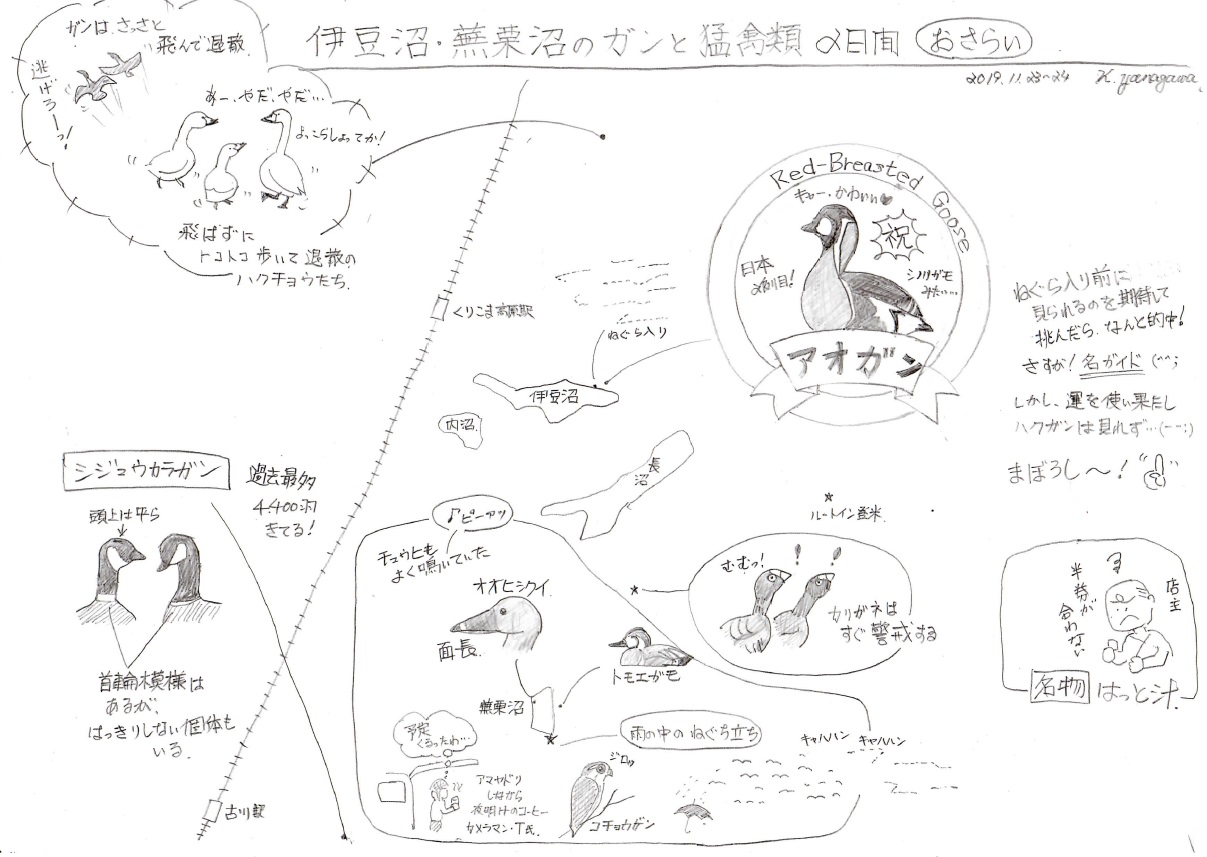 伊豆沼・蕪栗沼のガンと猛禽類 2日間 おさらい
2019.11.23~24 K.yanagawa
ガンは、さっさと
飛んで退散
逃げろーっ!
あー、やだ、やだ…
よっこらしょってか!
飛ばずに
トコトコ歩いて退散の
ハクチョウたち.
くりこま高原駅
ねぐら入り
伊豆沼
内沼
長沼
Red-Breasted Goose
キャー、かわいい♥
祝
日本
2例目!
シノリガモ
みたい…
アオガン
ねぐら入り前に
見られるのを期待して
挑んだら、なんと的中!
さすが!名ガイド (^^;
しかし、運を使い果たし
ハクガンは見れず…(--;)
まぼろし〜!
シジュウカラガン
過去最多
4,400羽
きてる!
頭上は平ら
首輪模様は
あるが、
はっきりしない個体も
いる.
古川駅
♪ピーアッ
チュウヒも
よく鳴いていた
オオヒシクイ
面長.
トモエガモ
蕪栗沼
ルートイン登米.
むむっ!
! !
カリガネは
すぐ警戒する
店主
半券が
合わない
名物 はっと汁.
予定
くるったわ…
アマヤドリ
しながら
夜明けのコーヒー
カメラマン・T氏.
ジロッ
コチョウゲン
雨の中のねぐら立ち
キャハハン キャハハン